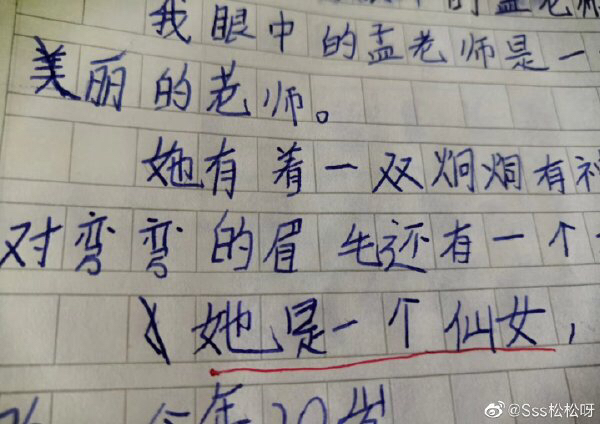 我眼中的孟老师是一
美丽的老师。
她有着一双炯炯有神
对弯弯的眉毛还有一个
她是一个仙女，
今年20岁
@Sss松松呀